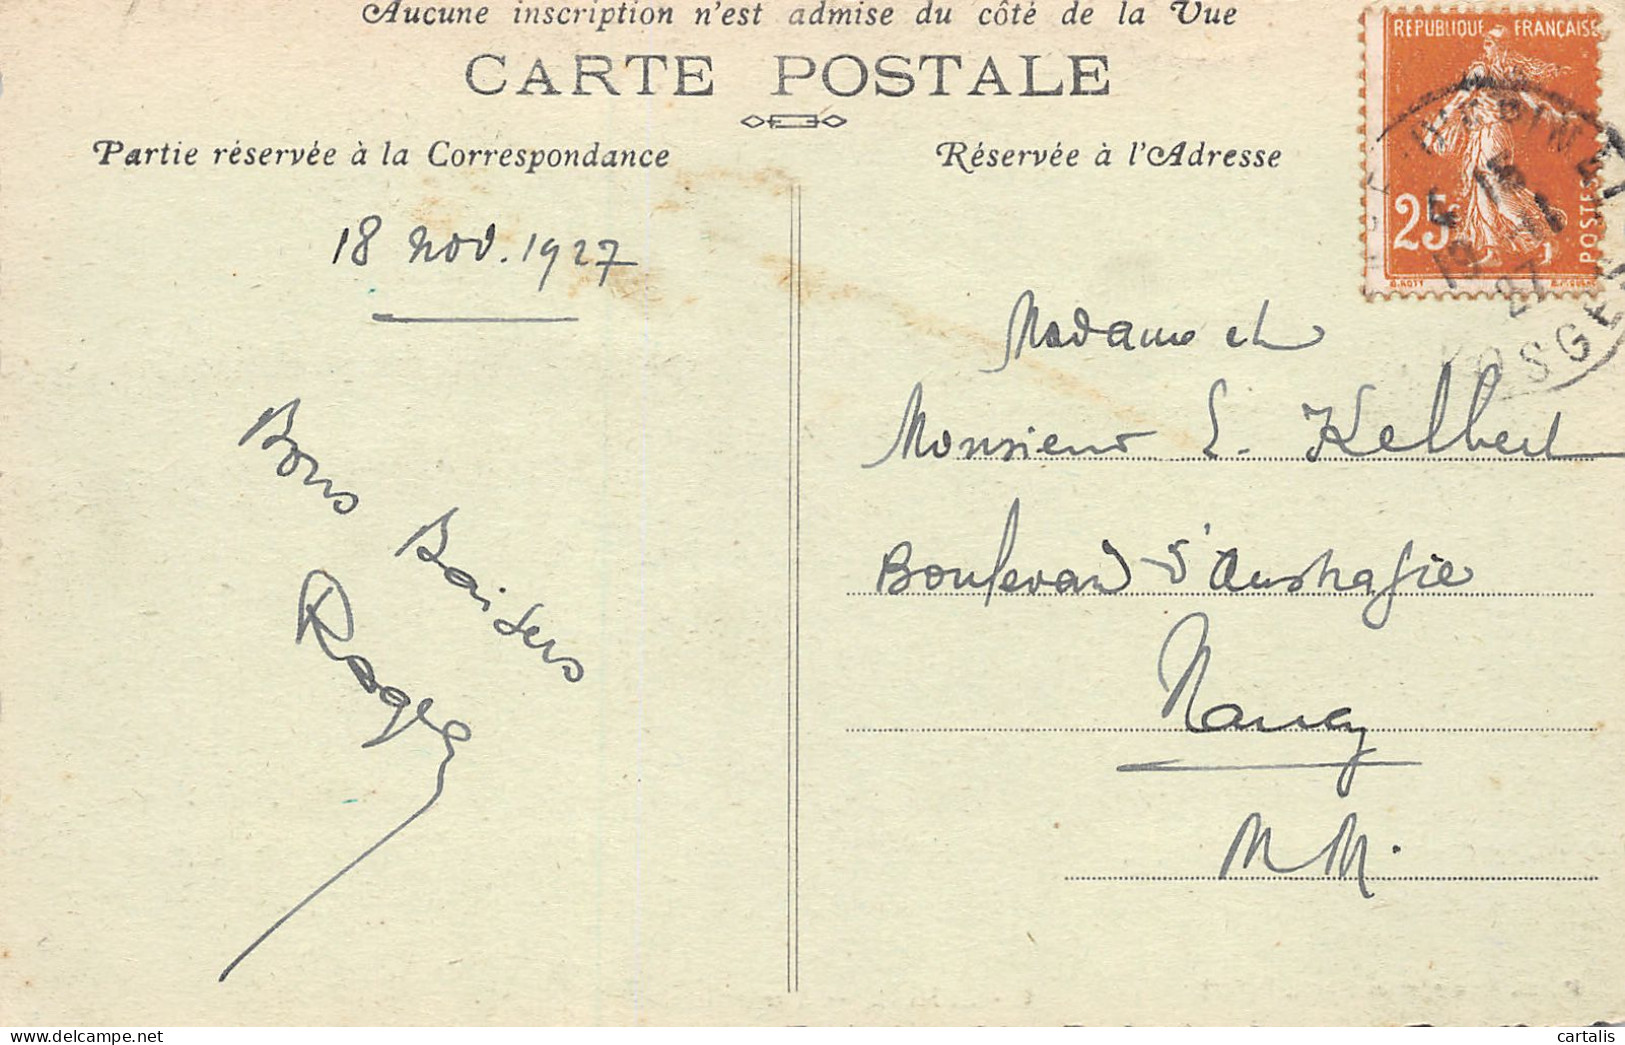 Aucune inscription n'est admise du côté de la Vue
CARTE POSTALE
Partie réservée à la Correspondance
Réservée à l'Adresse
REPUBLIQUE FRANÇAISE
25c
POSTES
18 nov. 1927
Bons Baisers
Roger
Madame et
Monsieur L. Kelbert
Boulevard d'Australie
Nancy
M M.
15
19 11
27
VOSGES
cartalis